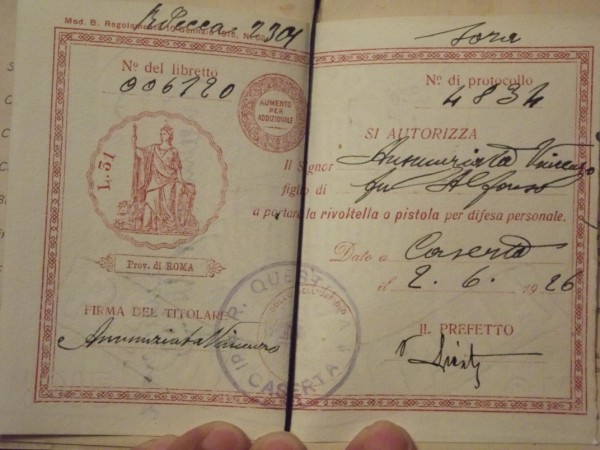 Mod. B. Regolamento
2301
Nº del libretto
006120
AUMENTO
PER
ADDIZIONALE
L. 31
Prov. di ROMA
FIRMA DEL TITOLARE
Annunziata Vincenzo
R. QUESTURA
DI CASERTA
Sora
Nº. di protocollo
4834
SI AUTORIZZA
Il Signor Annunziata Vincenzo
figlio di fu Alfonso
a portare la rivoltella o pistola per difesa personale.
Dato a Caserta
il 2. 6. 1926
IL PREFETTO